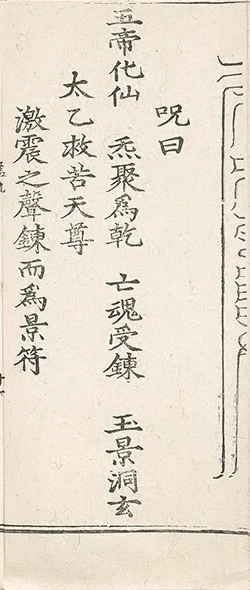 呪曰
五帝化仙 炁聚爲乾 亡魂受鍊 玉景洞玄
太乙救苦天尊
激震之聲鍊而爲景符